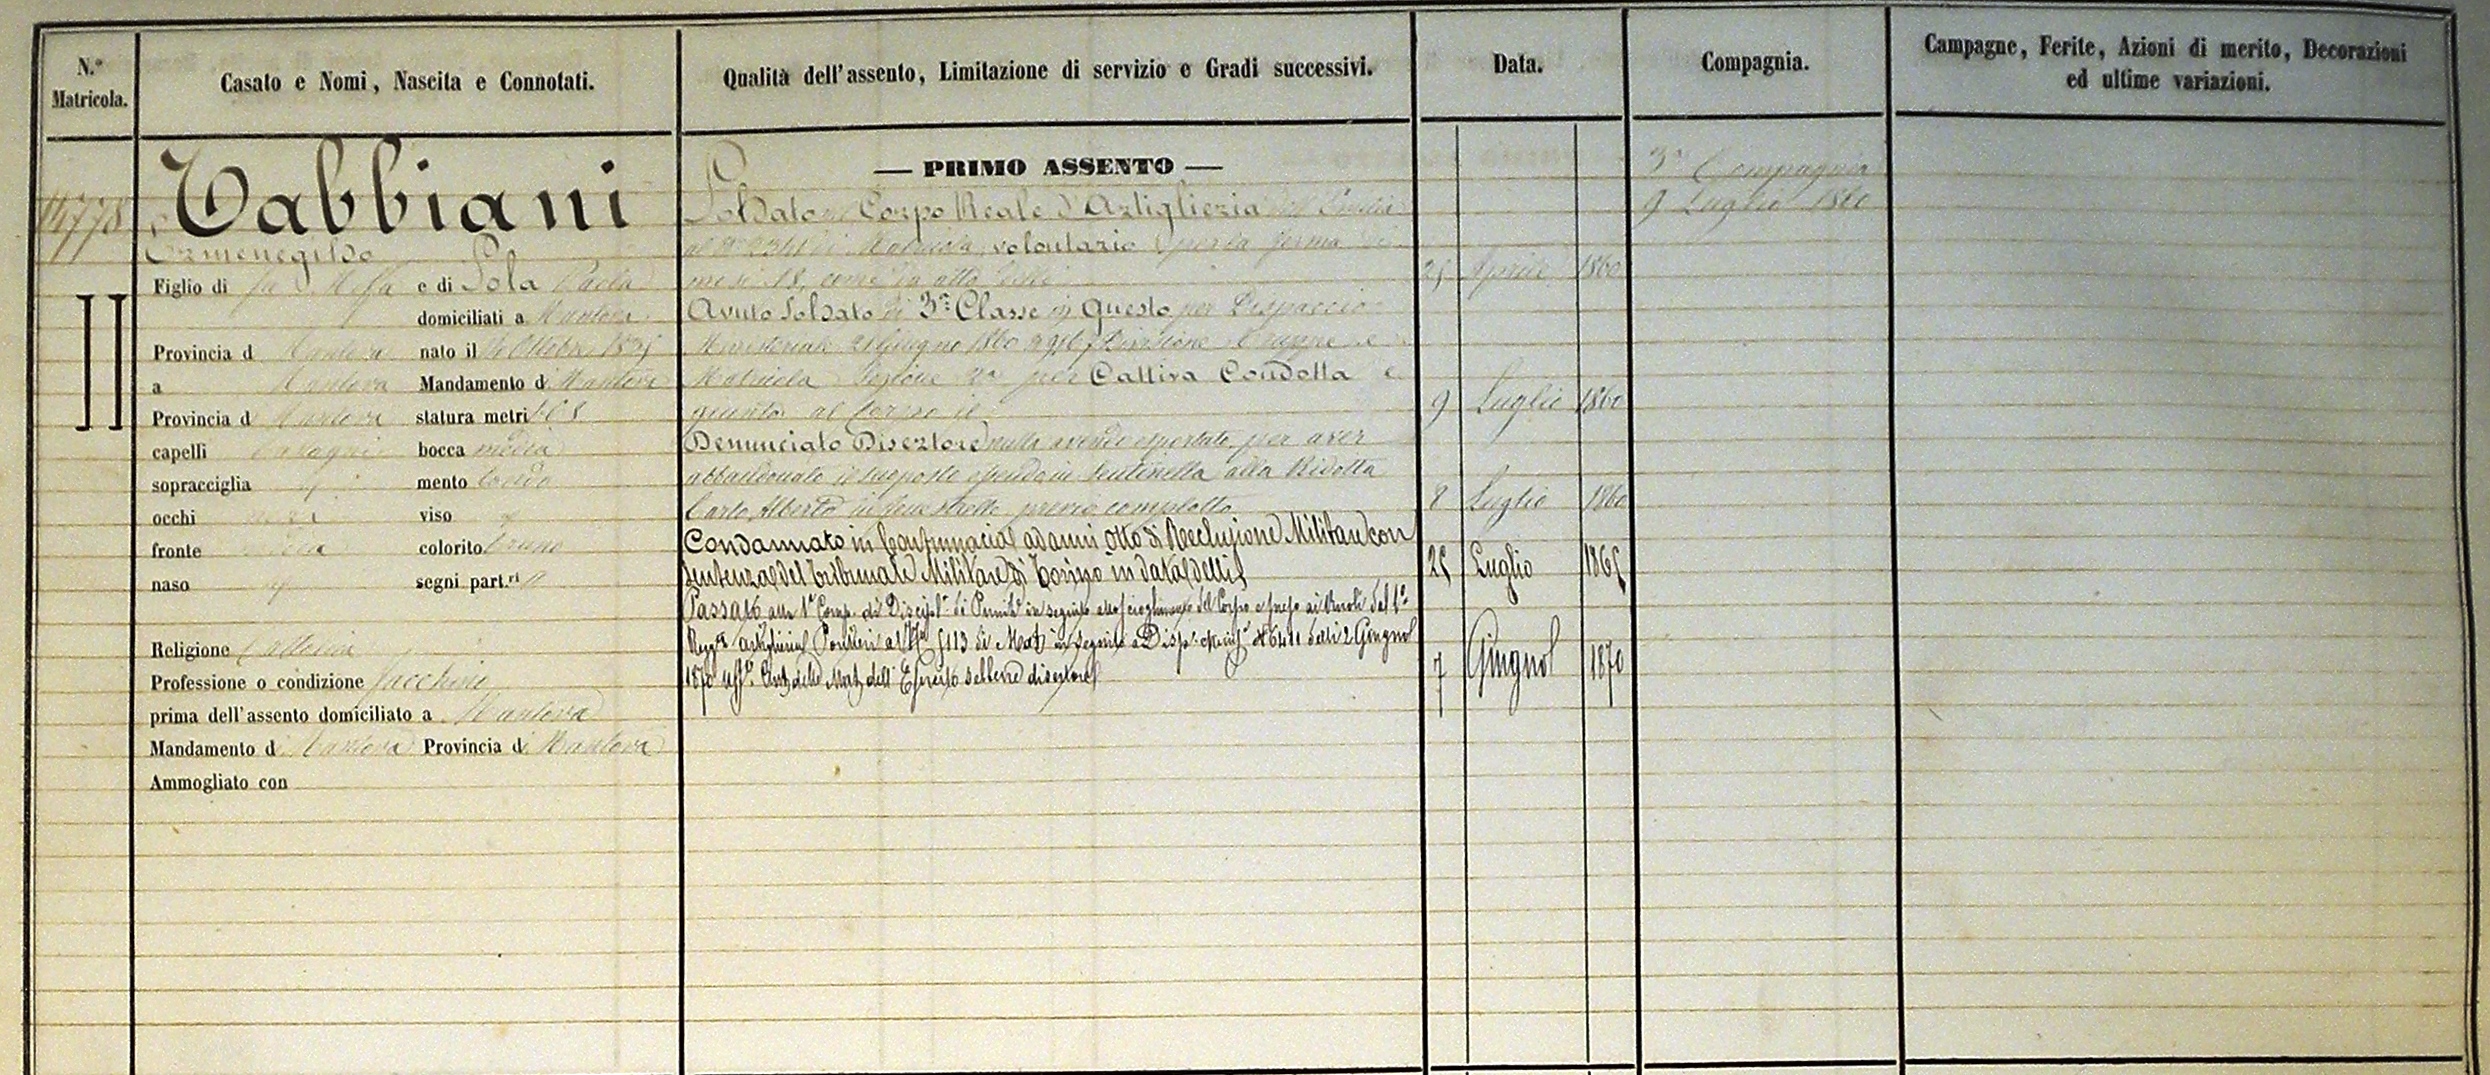 N.° Matricola.
Casato e Nomi, Nascita e Connotati.
Qualità dell'assento, Limitazione di servizio e Gradi successivi.
Data.
Compagnia.
Campagne, Ferite, Azioni di merito, Decorazioni
ed ultime variazioni.
14778
Tabbiani
Ermenegildo
Figlio di fu e di Sola Paola
domiciliati a Mantova
Provincia d Mantova nato il Ottobre
a Mantova Mandamento di Mantova
Provincia d Mantova statura metri
capelli castagni bocca media
sopracciglia mento tondo
occhi neri viso
fronte media colorito bruno
naso segni part.ri //
Religione Cattolica
Professione o condizione Facchino
prima dell'assento domiciliato a Mantova
Mandamento di Mantova Provincia di Mantova
Ammogliato con
— PRIMO ASSENTO —
Soldato nel Corpo Reale d'Artiglieria dell'Emilia
al N° di Matricola, volontario per la ferma di
mesi 18, come da atto delli 25 Aprile 1860
Avuto Soldato di 3ª Classe in questo per Dispaccio
Ministeriale 21 Giugno 1860 Divisione Truppe e
Matricola Sezione 2ª per Cattiva Condotta e
giunto al Corpo il 9 Luglio 1860
Denunciato Disertore nulla avendo esportato, per aver
abbandonato il suo posto essendo in sentinella alla Ridotta
Carlo Alberto in Fenestrelle previo complotto 8 Luglio 1860
Condannato in Contumacia ad anni otto di Reclusione Militare con
sentenza del Tribunale Militare di Torino in data delli 25 Luglio 1865
Passato alla 1ª Comp. di Discipl. di Punit. in seguito allo scioglimento del Corpo e preso ai Ruoli del 1°
Regg.to Artiglieria Pontieri al N° 5113 di Mat. in seguito a Disp. Minist. N° 6411 delli 2 Giugno
1870 Uff. Cent. delle Mat. dell'Esercito sebbene disertore 7 Giugno 1870
3ª Compagnia
9 Luglio 1860